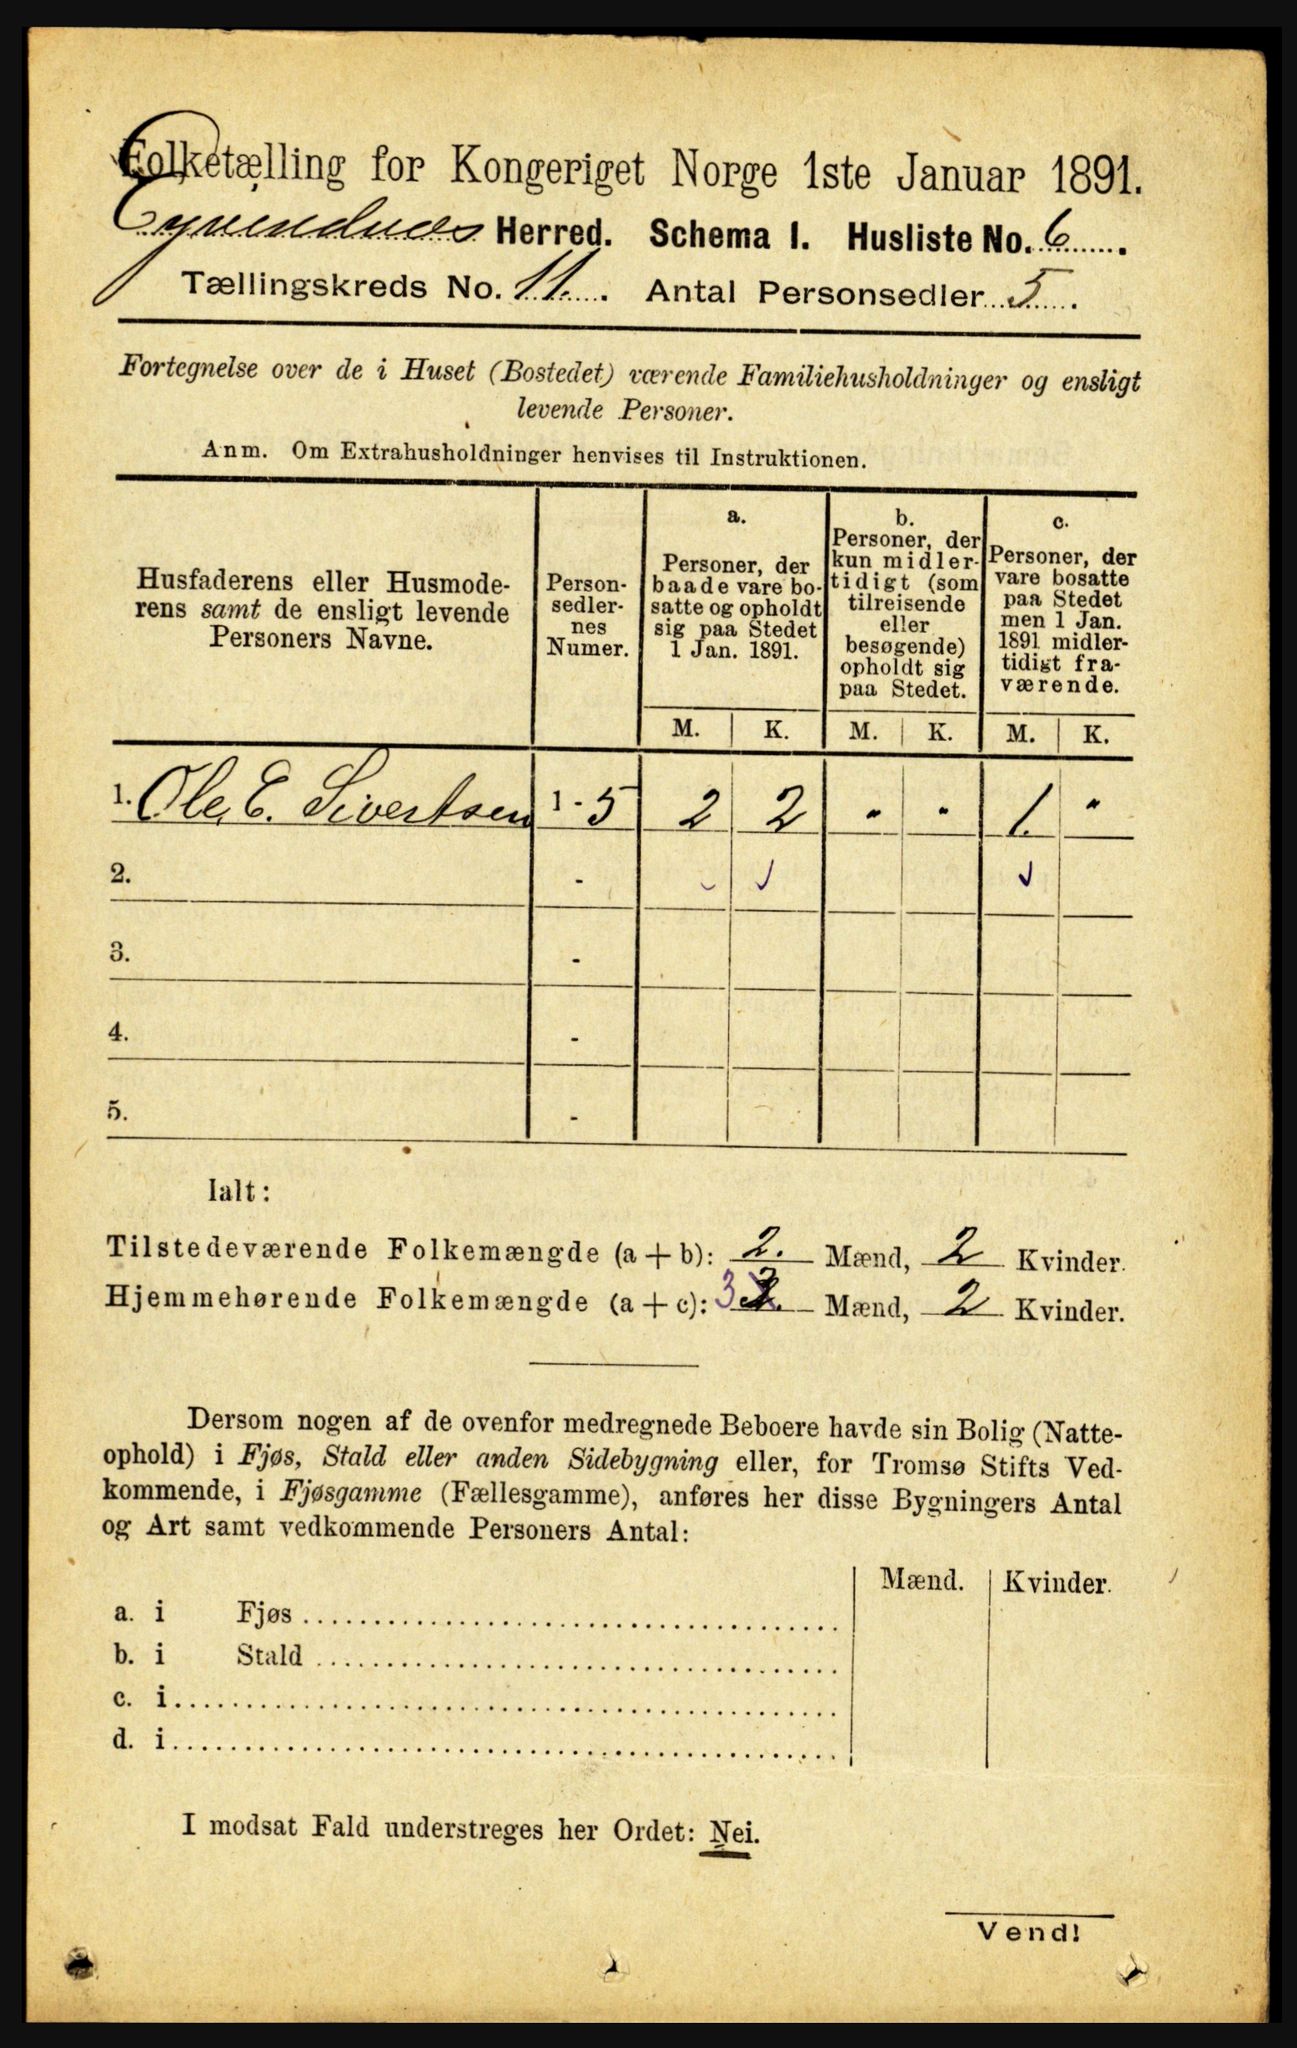 Folketælling for Kongeriget Norge 1ste Januar 1891.
Eyvendvæs Herred. Schema I. Husliste No. 6
Tællingskreds No. 11. Antal Personsedler 5
Fortegnelse over de i Huset (Bostedet) værende Familiehusholdninger og ensligt
levende Personer.
Anm. Om Extrahusholdninger henvises til Instruktionen.
Husfaderens eller Husmode-
rens samt de ensligt levende
Personers Navne.
Person-
sedler-
nes
Numer.
a.
Personer, der
baade vare bo-
satte og opholdt
sig paa Stedet
1 Jan. 1891.
b.
Personer, der
kun midler-
tidigt (som
tilreisende
eller
besøgende)
opholdt sig
paa Stedet.
c.
Personer, der
vare bosatte
paa Stedet
men 1 Jan.
1891 midler-
tidigt fra-
værende.
M. K. M. K. M. K.
1. Ole E. Sivertsen 1 - 5 2 2 " " 1. "
2. - ✓ ✓ ✓
3. -
4. -
5. -
Ialt:
Tilstedeværende Folkemængde (a + b): 2. Mænd, 2 Kvinder.
Hjemmehørende Folkemængde (a + c): 3 2. Mænd, 2 Kvinder.
Dersom nogen af de ovenfor medregnede Beboere havde sin Bolig (Natte-
ophold) i Fjøs, Stald eller anden Sidebygning eller, for Tromsø Stifts Ved-
kommende, i Fjøsgamme (Fællesgamme), anføres her disse Bygningers Antal
og Art samt vedkommende Personers Antal:
Mænd. Kvinder.
a. i Fjøs
b. i Stald
c. i
d. i
I modsat Fald understreges her Ordet: Nei.
Vend!